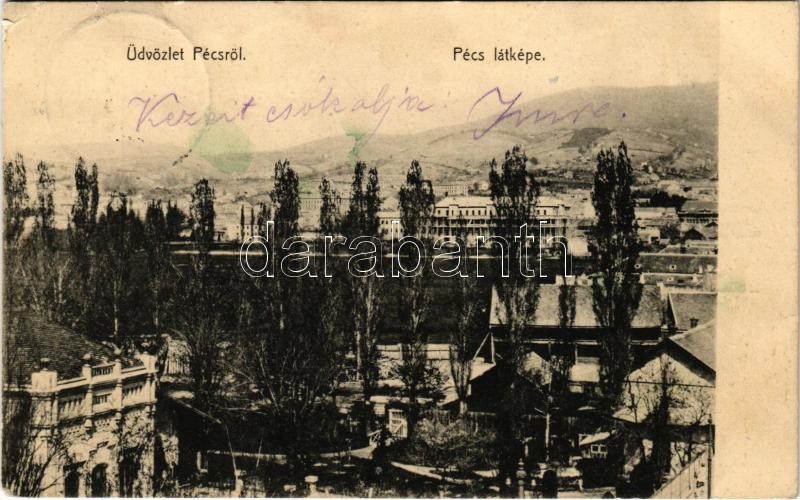 Üdvözlet Pécsröl.
Pécs látképe.
Kezeit csókolja: Imre.
darabanth